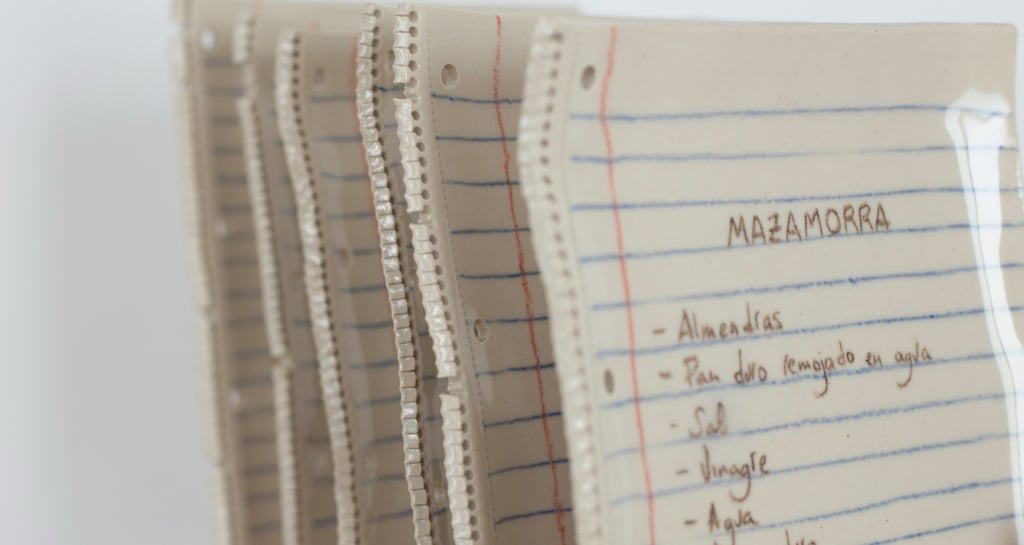 MAZAMORRA
- Almendras
- Pan duro remojado en agua
- Sal
- Vinagre
- Agua